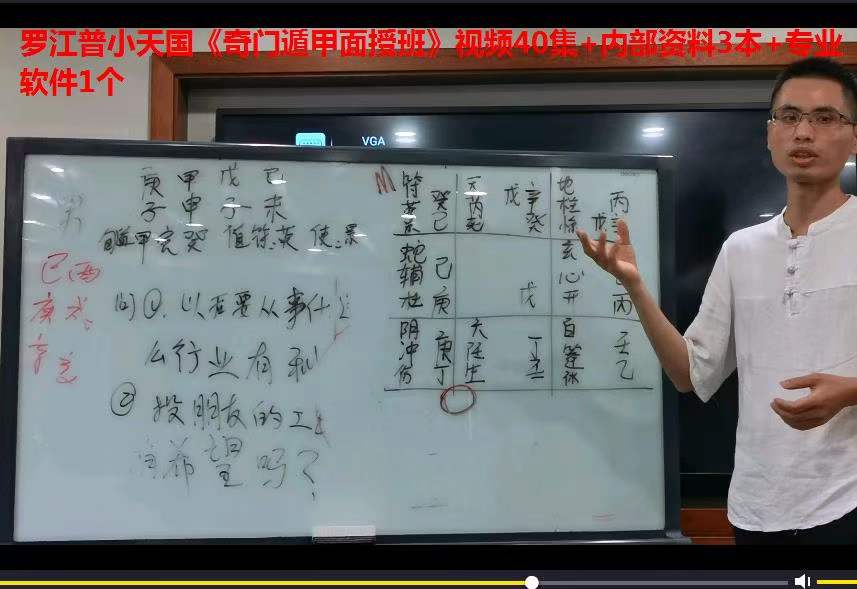 罗江普小天国《奇门遁甲面授班》视频40集+内部资料3本+专业
软件1个
VGA
庚 甲 戊 己
子 申 子 未
甲 癸 值符英 使景
己酉
庚戌
辛亥
问①.以后要从事什
么行业有利
② 投朋友的工
有希望吗?
符英景 癸己
天芮死 戊 辛癸
地柱惊 丙 戊
蛇辅杜 己庚
戊
玄心开 丙
阴冲伤 庚丁
天任生 丁壬
白蓬休 壬乙